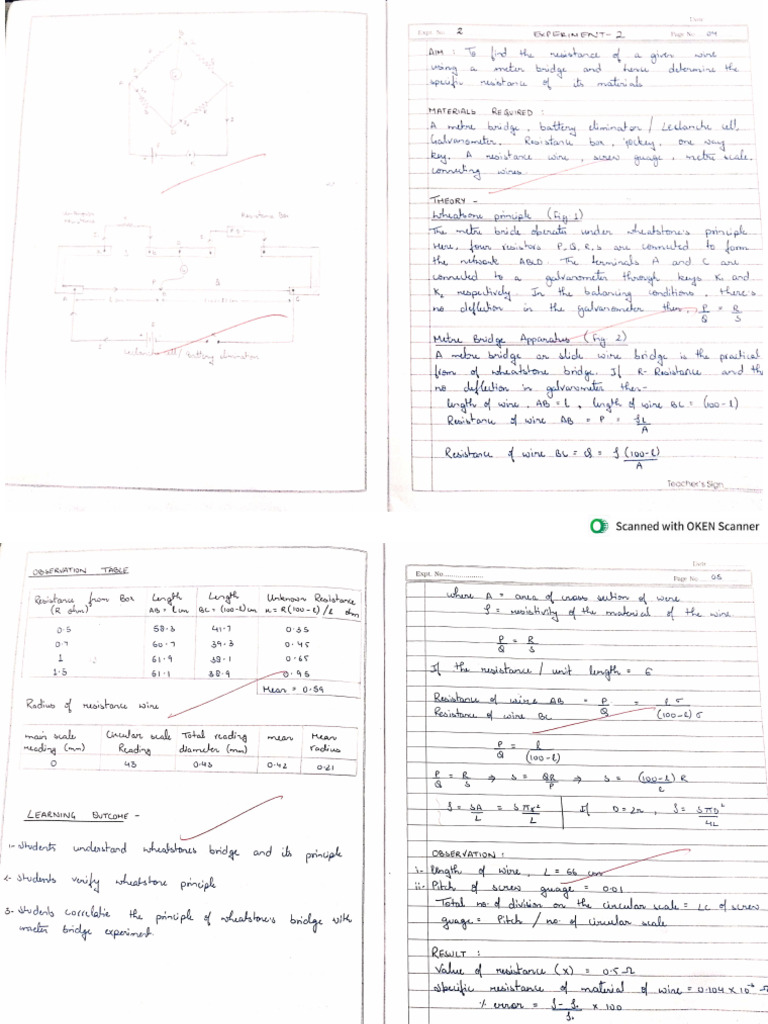 Date
Expt. No. 2
EXPERIMENT-2
Page No. 04
AIM : To find the resistance of a given wire
using a meter bridge and hence determine the
specific resistance of its materials
MATERIALS REQUIRED :
A metre bridge, battery eliminator / Leclanche cell,
Galvanometer. Resistance box, jockey, one way
key. A resistance wire, screw guage, metre scale,
connecting wires
THEORY -
Wheatsone principle (Fig 1)
The metre bride operates under wheatstone's principle
Here, four resistors P, Q, R, S are connected to form
the network ABCD. The terminals A and C are
connected to a galvanometer through keys K₁ and
K₂ respectively. In the balancing conditions, there's
no deflection in the galvanometer then, P/Q = R/S
Metre Bridge Apparatus (Fig 2)
A metre bridge or slide wire bridge is the practical
from of wheatstone bridge. If R- Resistance and th
no deflection in galvanometer then-
length of wire, AB = l, length of wire BC = (100-l)
Resistance of wire AB = P = ρl/A
Resistance of wire BC = Q = ρ(100-l)/A
Teacher's Sign
Resistance Box
/ Battery elimination
Scanned with OKEN Scanner
OBSERVATION TABLE
Resistance from Box (R ohm) Length AB = l cm Length BC = (100-l) cm Unknown Resistance x = R(100-l)/l ohm
0.5 58.3 41.7 0.35
0.7 60.7 39.3 0.45
1 61.9 38.1 0.65
1.5 61.1 38.9 0.95
Mean = 0.59
Radius of resistance wire
main scale reading (mm) Circular scale Reading Total reading diameter (mm) mean Mean radius
0 43 0.43 0.42 0.21
LEARNING OUTCOME -
1- students understand wheatstones bridge and its principle
2- students verify wheatstone principle
3- students correlatie the principle of wheatstone's bridge with
meter bridge experiment
Date
Expt. No.
Page No. 05
where A = area of cross section of wire
ρ = resistivity of the material of the wire
P/Q = R/S
If the resistance / unit length = σ
Resistance of wire AB / Resistance of wire BC = P/Q = lσ/(100-l)σ
P/Q = l/(100-l)
P/Q = R/S ⇒ S = QR/P ⇒ S = (100-l)R/l
ρ = SA/L = Sπr²/L If D = 2r, ρ = SπD²/4L
OBSERVATION :
i- length of wire, L = 66 cm
ii- Pitch of screw guage = 0.01
Total no. of division on the circular scale = LC of screw
guage = Pitch / no. of circular scale
RESULT :
Value of resistance (x) = 0.5 Ω
specific resistance of material of wire = 0.104 × 10⁻⁶ Ω
% error = × 100